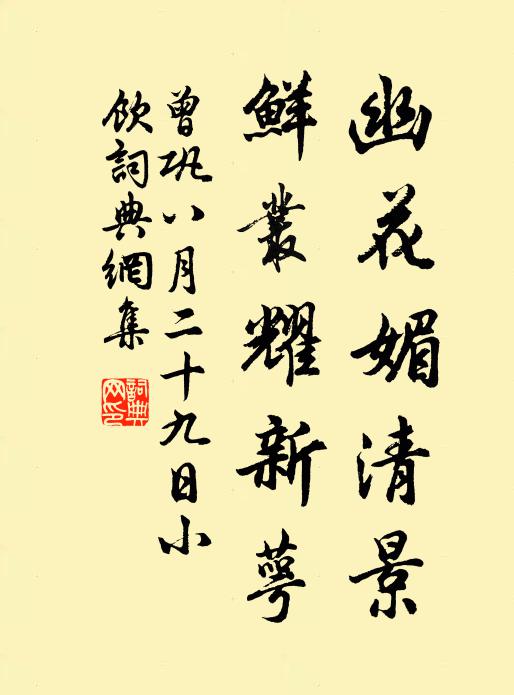 幽花媚清景
鮮叢耀新萼
曾巩八月二十九日小
飲詞典網集
詞典网印